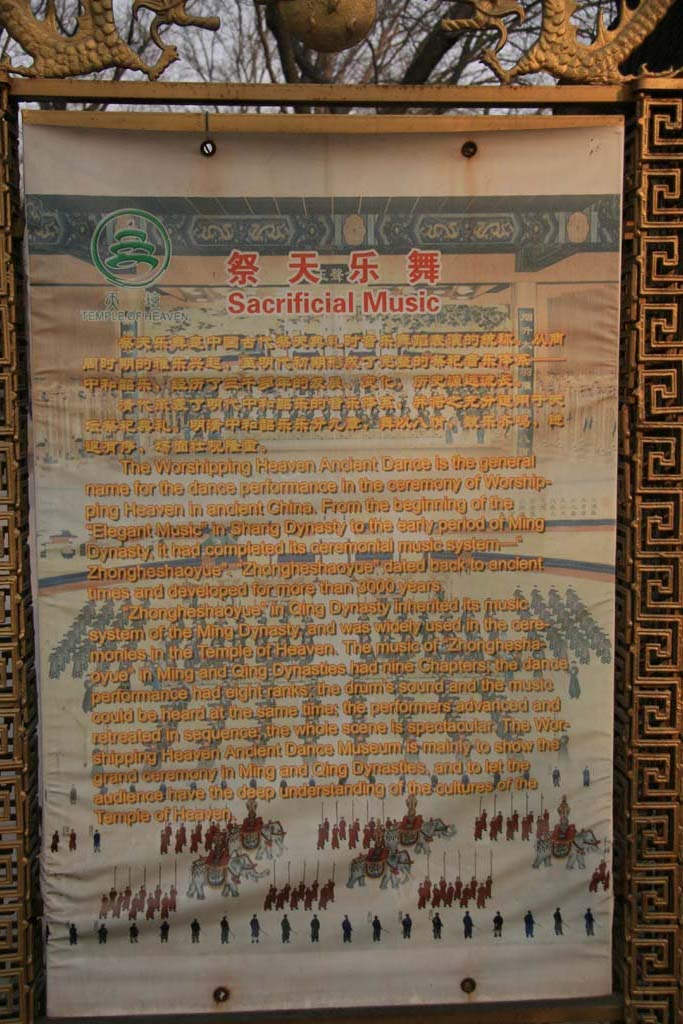 祭天乐舞
Sacrificial Music
天坛
TEMPLE OF HEAVEN
祭天乐舞是中国古代祭天典礼时音乐舞蹈表演的统称。从商
周时期的雅乐兴起，至明代初期形成了完整的祭祀音乐体系——
中和韶乐，经历了三千多年的发展、演化，历史源远流长。
The Worshipping Heaven Ancient Dance is the general
name for the dance performance in the ceremony of Worship-
ping Heaven in ancient China. From the beginning of the
"Elegant Music" in Shang Dynasty to the early period of Ming
Dynasty, it had completed its ceremonial music system—"
Zhongheshaoyue". "Zhongheshaoyue" dated back to ancient
times and developed for more than 3000 years.
"Zhongheshaoyue" in Qing Dynasty inherited its music
system of the Ming Dynasty and was widely used in the cere-
monies in the Temple of Heaven. The music of "Zhonghesha-
oyue" in Ming and Qing Dynasties had nine Chapters, the dance
performance had eight ranks, the drum's sound and the music
could be heard at the same time, the performers advanced and
retreated in sequence, the whole scene is spectacular. The Wor-
shipping Heaven Ancient Dance Museum is mainly to show the
grand ceremony in Ming and Qing Dynasties, and to let the
audience have the deep understanding of the cultures of the
Temple of Heaven.